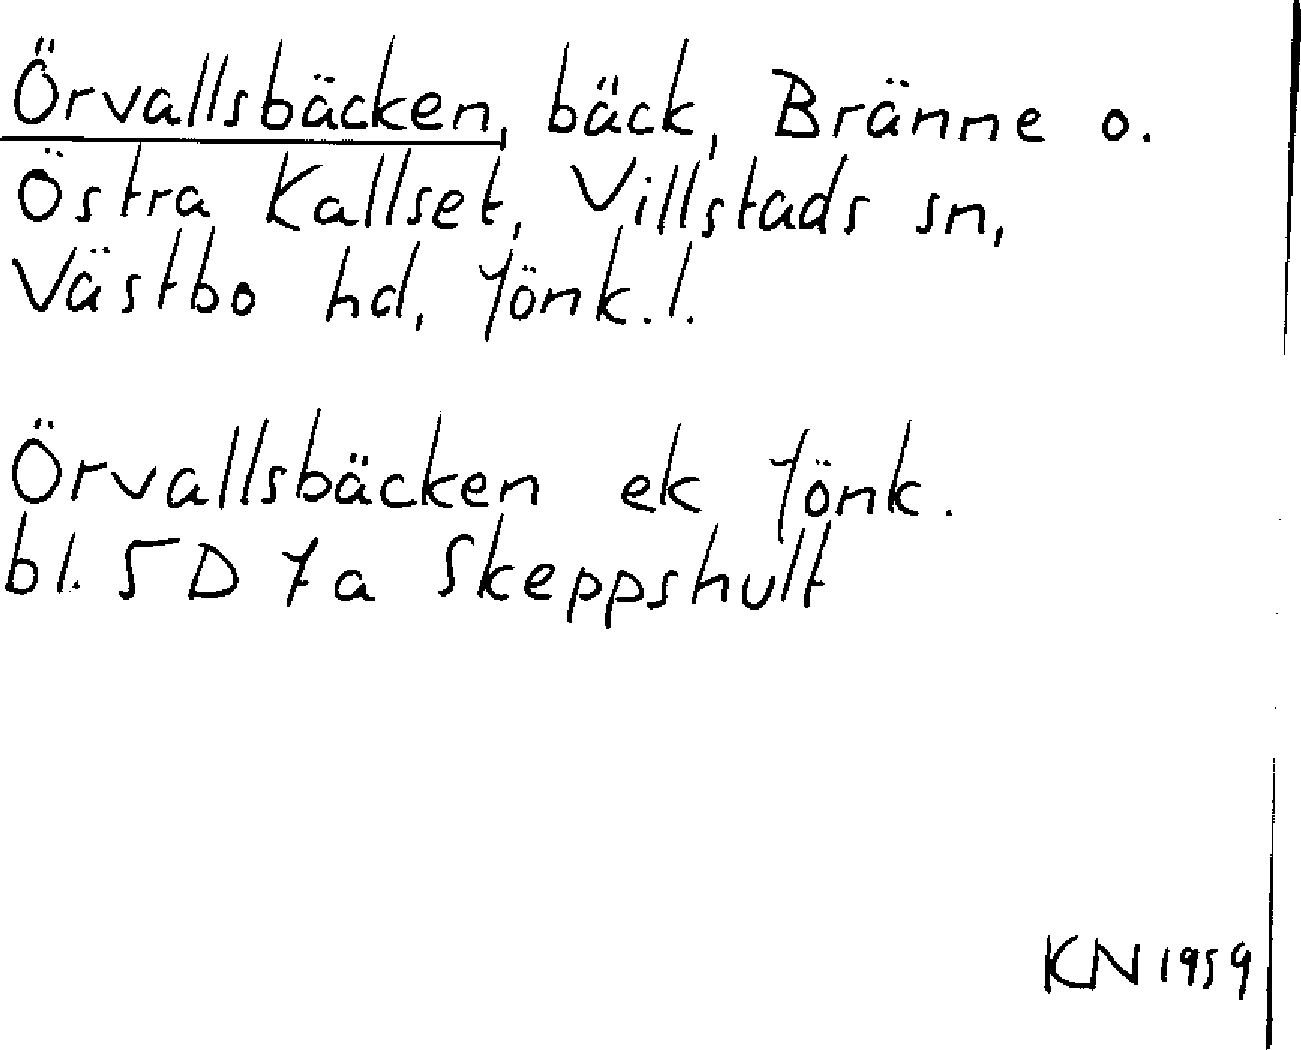 Örvallsbäcken, bäck, Bränne o.
Östra Kallset, Villstads sn,
Västbo hd, Jönk.l.
Örvallsbäcken ek Jönk.
bl. 5 D 7 a Skeppshult
KN 1959